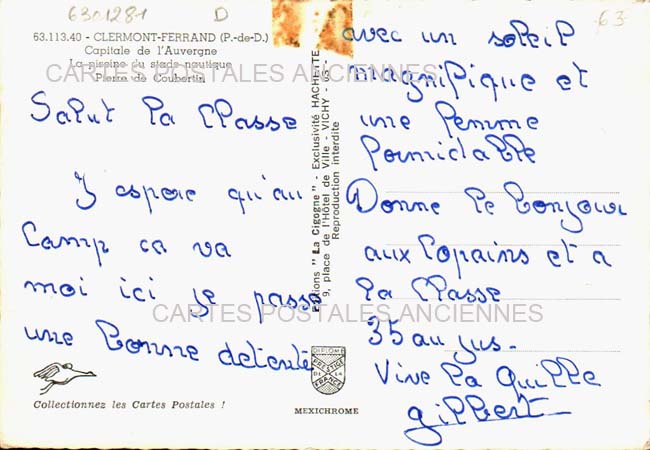 6301281 D
63
63.113.40 - CLERMONT-FERRAND (P.-de-D.)
Capitale de l'Auvergne
La piscine du stade nautique
Pierre de Coubertin
CARTES POSTALES ANCIENNES
Salut la Classe
J espere qu'au
Camp ca va
moi ici je passe
une bonne detente
avec un soleil
magnifique et
une femme
formidable
Donne le bonjour
aux Copains et a
la Classe
35 au jus.
Vive la quille
gilbert
CARTES POSTALES ANCIENNES
Editions "La Cigogne" - Exclusivité HACHETTE
9, place de l'Hôtel de Ville - VICHY
Reproduction interdite
DIPLOME
PRESTIGE
DE LA
FRANCE
Collectionnez les Cartes Postales !
MEXICHROME